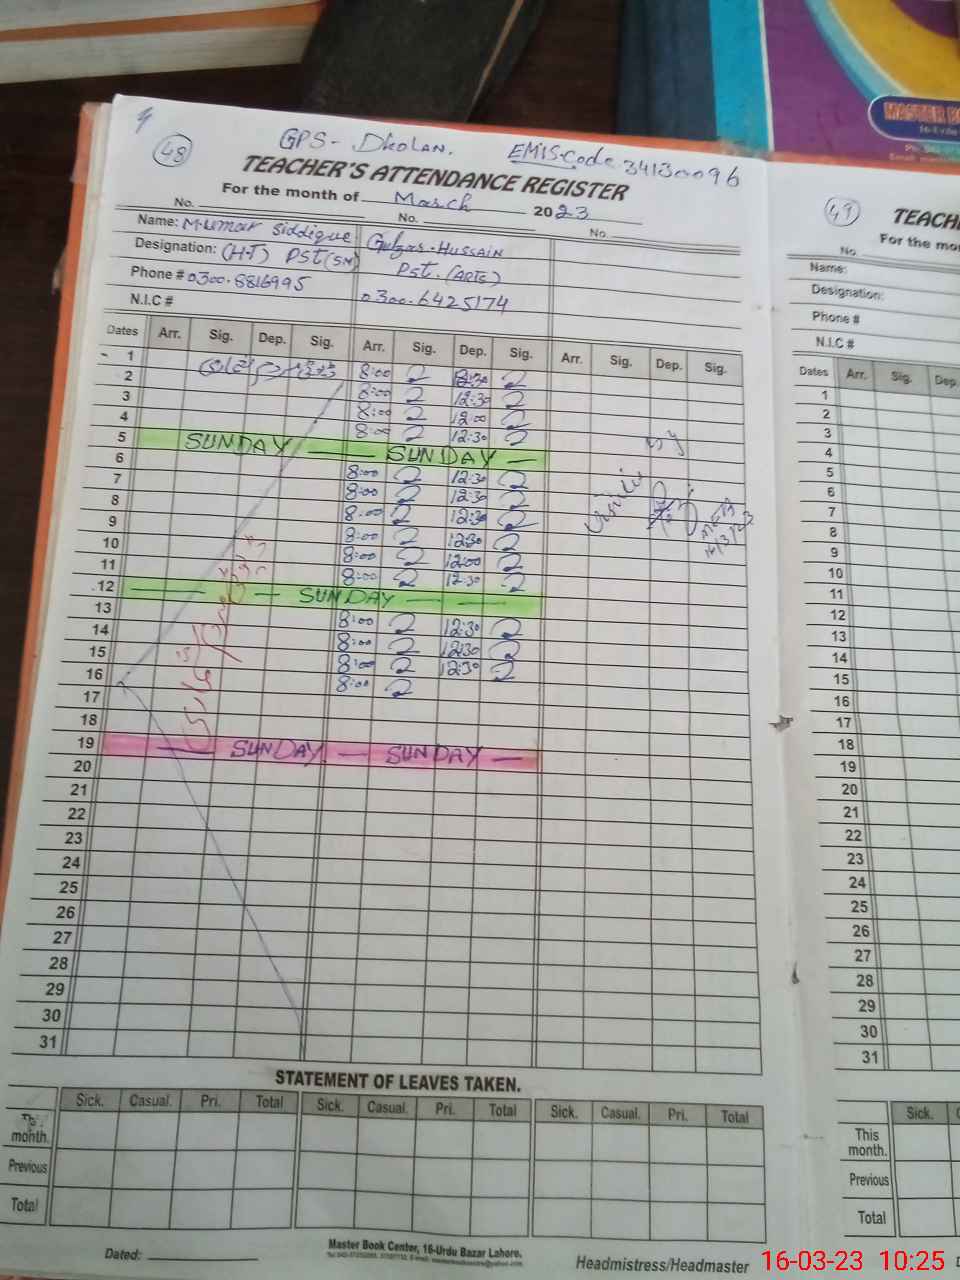 48
GPS - Dholan. EMIS Code 34130096
TEACHER'S ATTENDANCE REGISTER
For the month of March 2023
No. No. No.
Name: M. umar Siddique Gulzar Hussain
Designation: (H.T) PST (SM) PST. (ARTS)
Phone # 0300.8816995 0300.6425174
N.I.C #
Dates Arr. Sig. Dep. Sig. Arr. Sig. Dep. Sig. Arr. Sig. Dep. Sig.
1 8:00 2 12:30 2
2 8:00 2 12:30 2
3 8:00 2 12:00 2
4 8:00 2 12:30 2
5 SUNDAY SUNDAY
6 8:00 2 12:30 2
7 8:00 2 12:30 2
8 8:00 2 12:30 2
9 8:00 2 12:30 2
10 8:00 2 12:00 2
11 8:00 2 12:30 2
12 SUNDAY
13 8:00 2 12:30 2
14 8:00 2 12:30 2
15 8:00 2 12:30 2
16 8:00 2
17
18
19 SUNDAY SUNDAY
20
21
22
23
24
25
26
27
28
29
30
31
STATEMENT OF LEAVES TAKEN.
Sick. Casual. Pri. Total Sick. Casual. Pri. Total Sick. Casual. Pri. Total
month.
Previous
Total
Dated:
Master Book Center, 16-Urdu Bazar Lahore.
Headmistress/Headmaster
49
TEACH
For the mon
No.
Name:
Designation:
Phone #
N.I.C #
Dates Arr. Sig. Dep.
1
2
3
4
5
6
7
8
9
10
11
12
13
14
15
16
17
18
19
20
21
22
23
24
25
26
27
28
29
30
31
Sick.
This
month.
Previous
Total
MASTER B
16-03-23 10:25